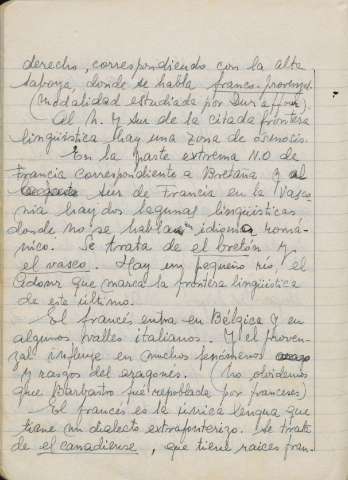 derecho, correspondiendo con la alta
saboya, donde se habla franco-provenzal.
(modalidad estudiada por Duraffour).
Al N. y Sur de la citada frontera
lingüística hay una zona de osmosis.
En la parte extrema N.O de
Francia correspondiente a Bretaña y al
sur de Francia en la Vasco
nia hay dos lagunas lingüísticas
donde no se hablan idioma romá-
nico. Se trata de el bretón y
el vasco. Hay un pequeño río, el
Adour que marca la frontera lingüística
de este último.
El francés entra en Bélgica y en
algunos valles italianos. Y el proven-
zal influye en muchos fenómenos
y rasgos del aragonés. (No olvidemos
que Barbastro fué repoblada por franceses)
El francés es la única lengua que
tiene un dialecto extrafronterizo. Se trata
de el canadiense, que tiene raices fran-